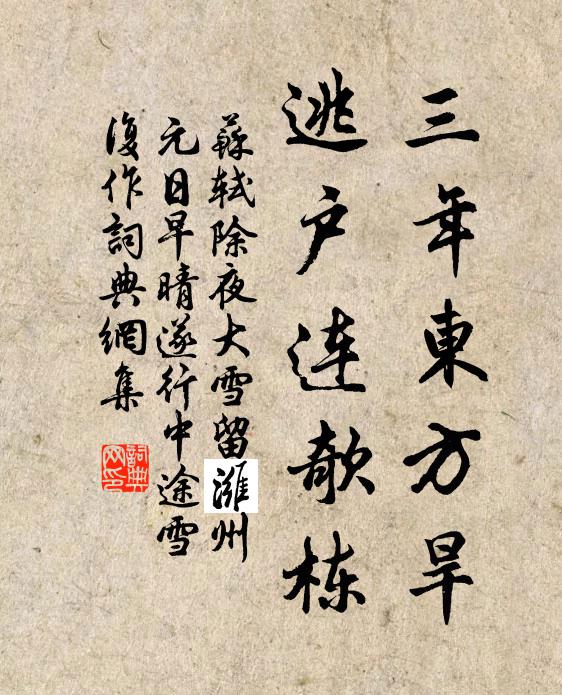 三年東方旱
逃户連欹栋
蘇軾除夜大雪留潍州
元日早晴遂行中途雪
復作詞典網集
詞典网印